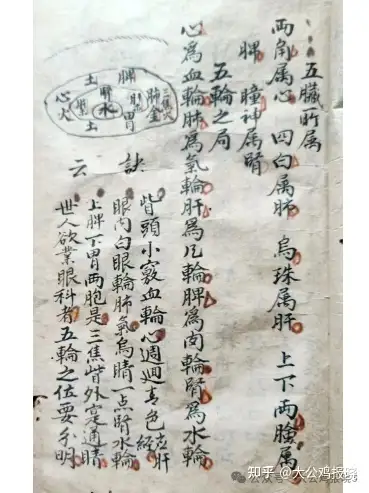 五臟所属
両角属心 四白属肺 烏珠属肝 上下両臉属
脾 瞳神属腎
五輪之局
心為血輪肺為氣輪肝為風輪脾為肉輪腎為水輪
土 脾
心火 腎水 胆 胃 肺金 三焦火
土
訣云
眥頭小竅血輪心週廻青色肝
眼内白眼輪肺氣烏睛一点腎水輪
上脾下胃両胞是三焦眥外定通睛
世人欲業眼科者五輪之位要分明
知乎 @大公鸡报晓
公众号·大公鸡报晓